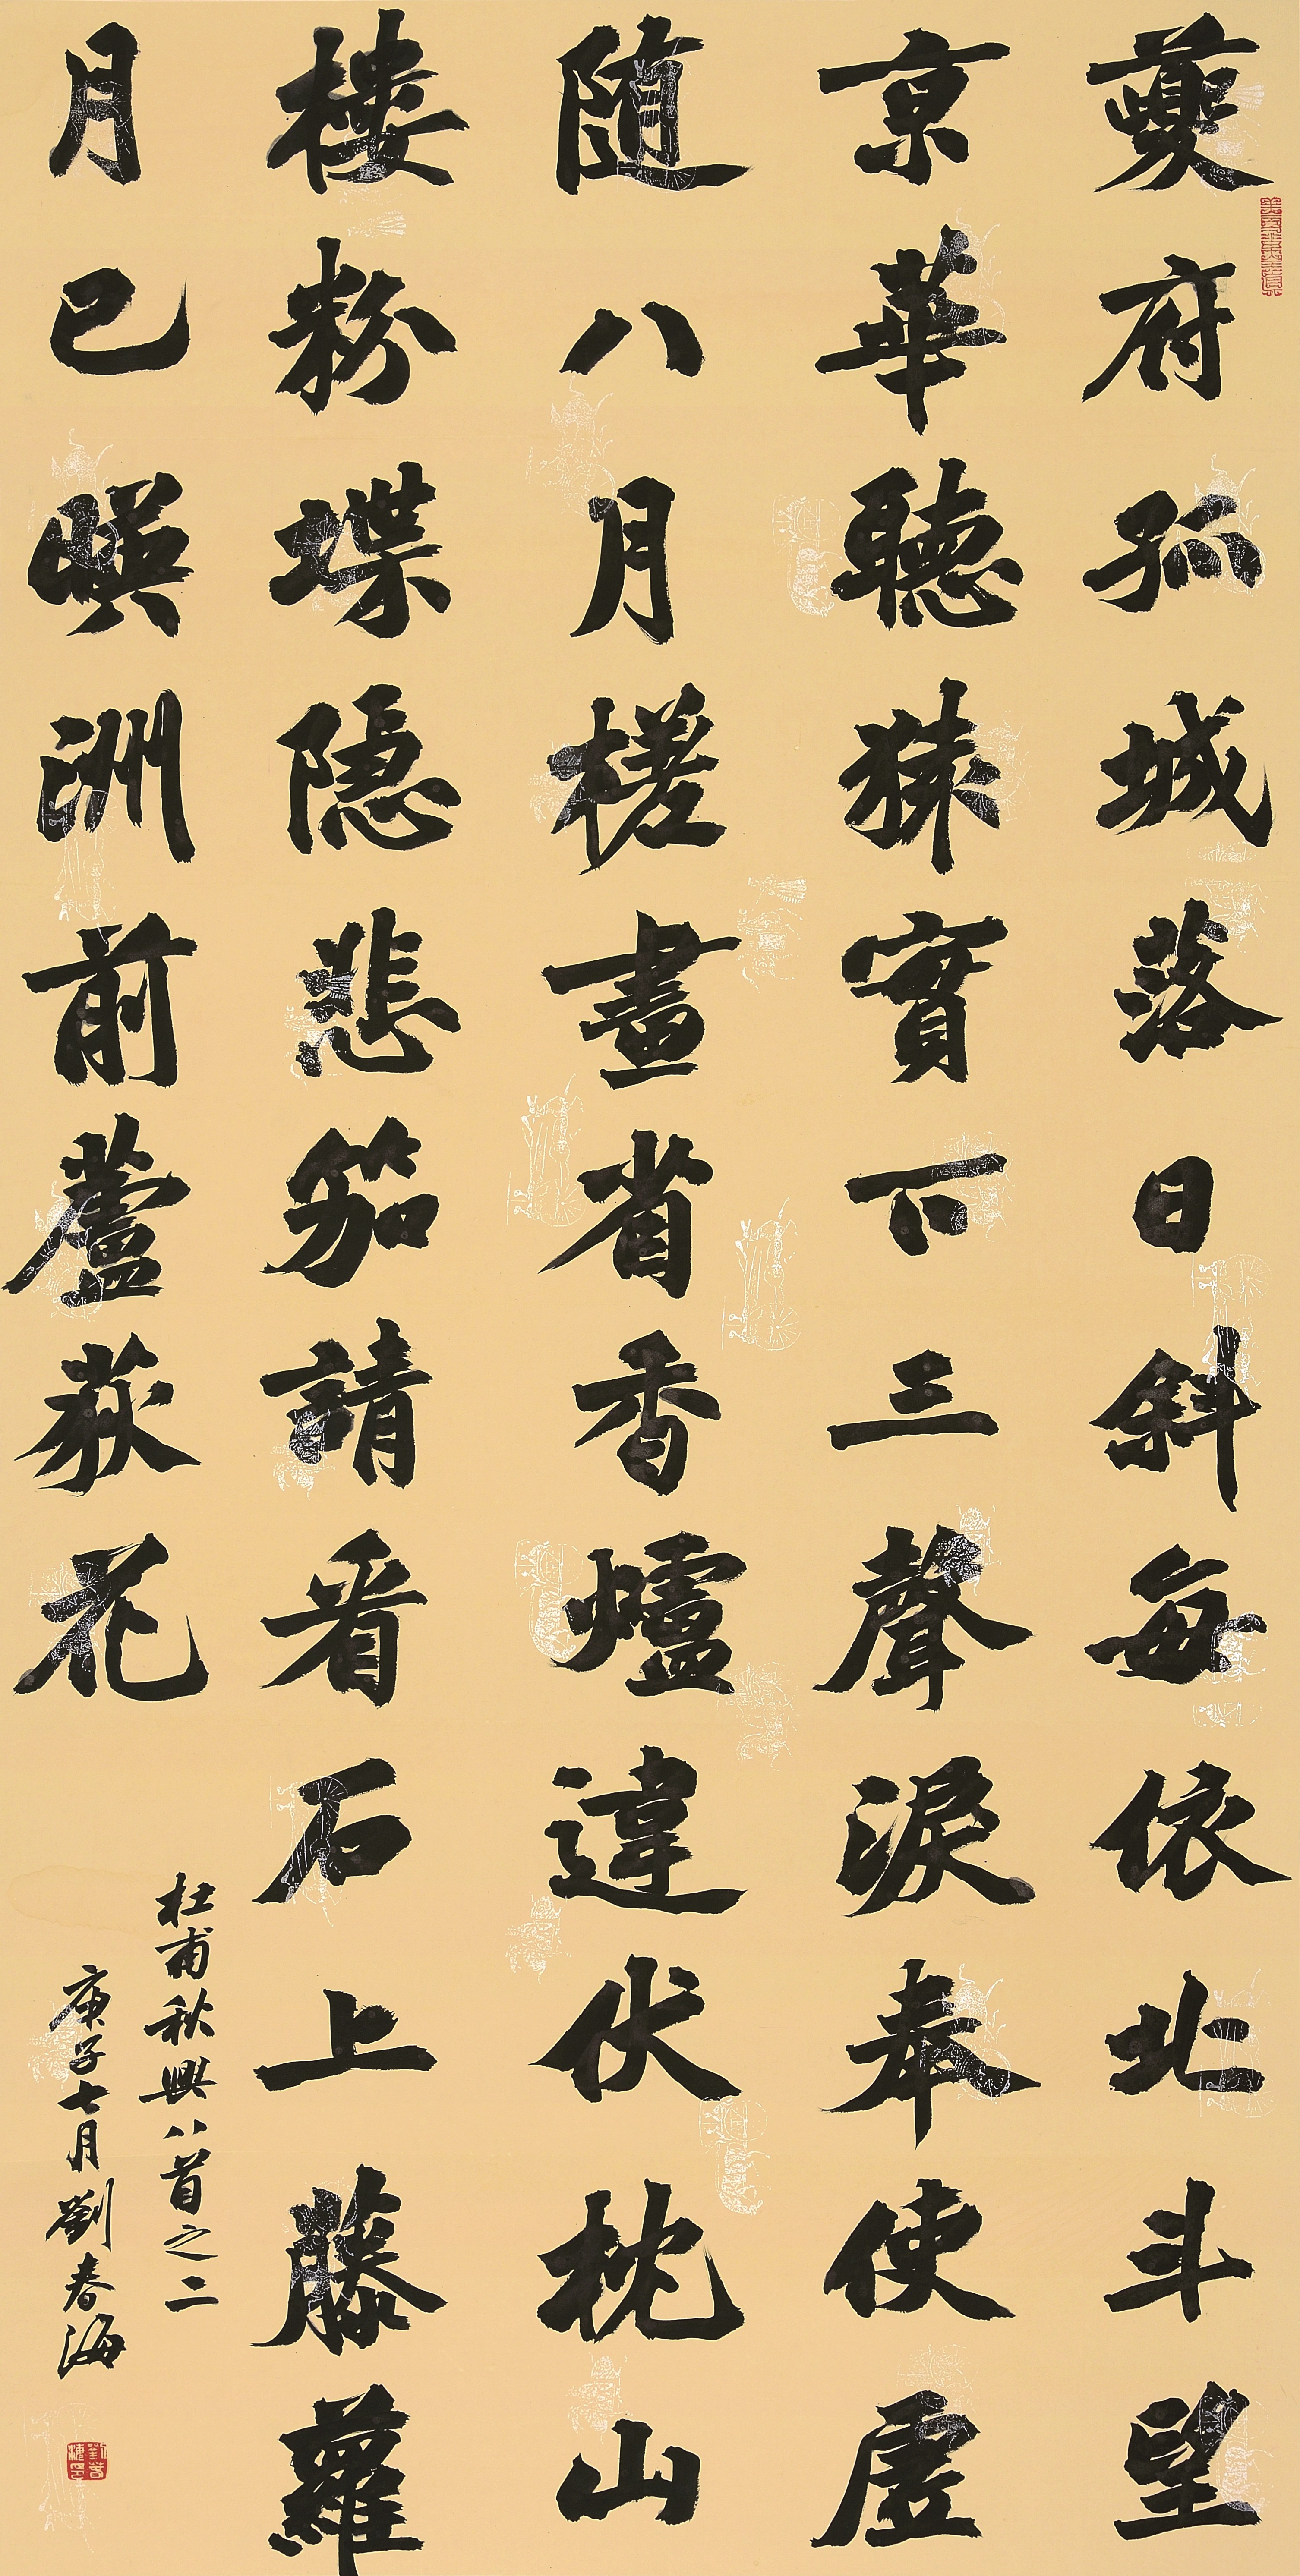 夔府孤城落日斜每依北斗望
京華聽猿實下三聲淚奉使虛
随八月槎畫省香爐違伏枕山
樓粉堞隱悲笳請看石上藤蘿
月已暎洲前蘆荻花
杜甫秋興八首之二
庚子七月劉春海